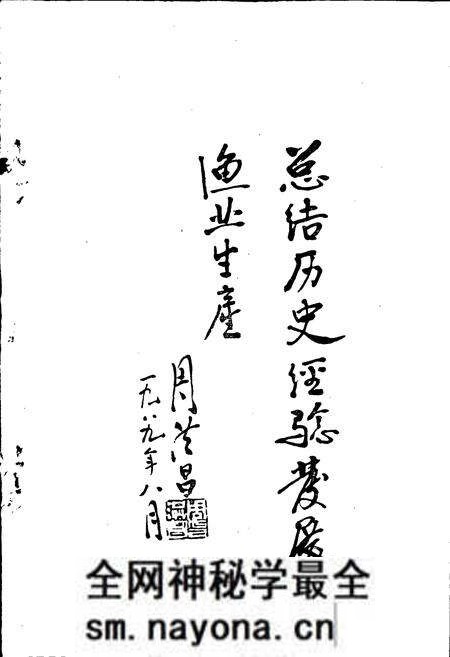 总结历史经验发展
渔业生产
周洪昌
一九八九年八月
全网神秘学最全
sm.nayona.cn